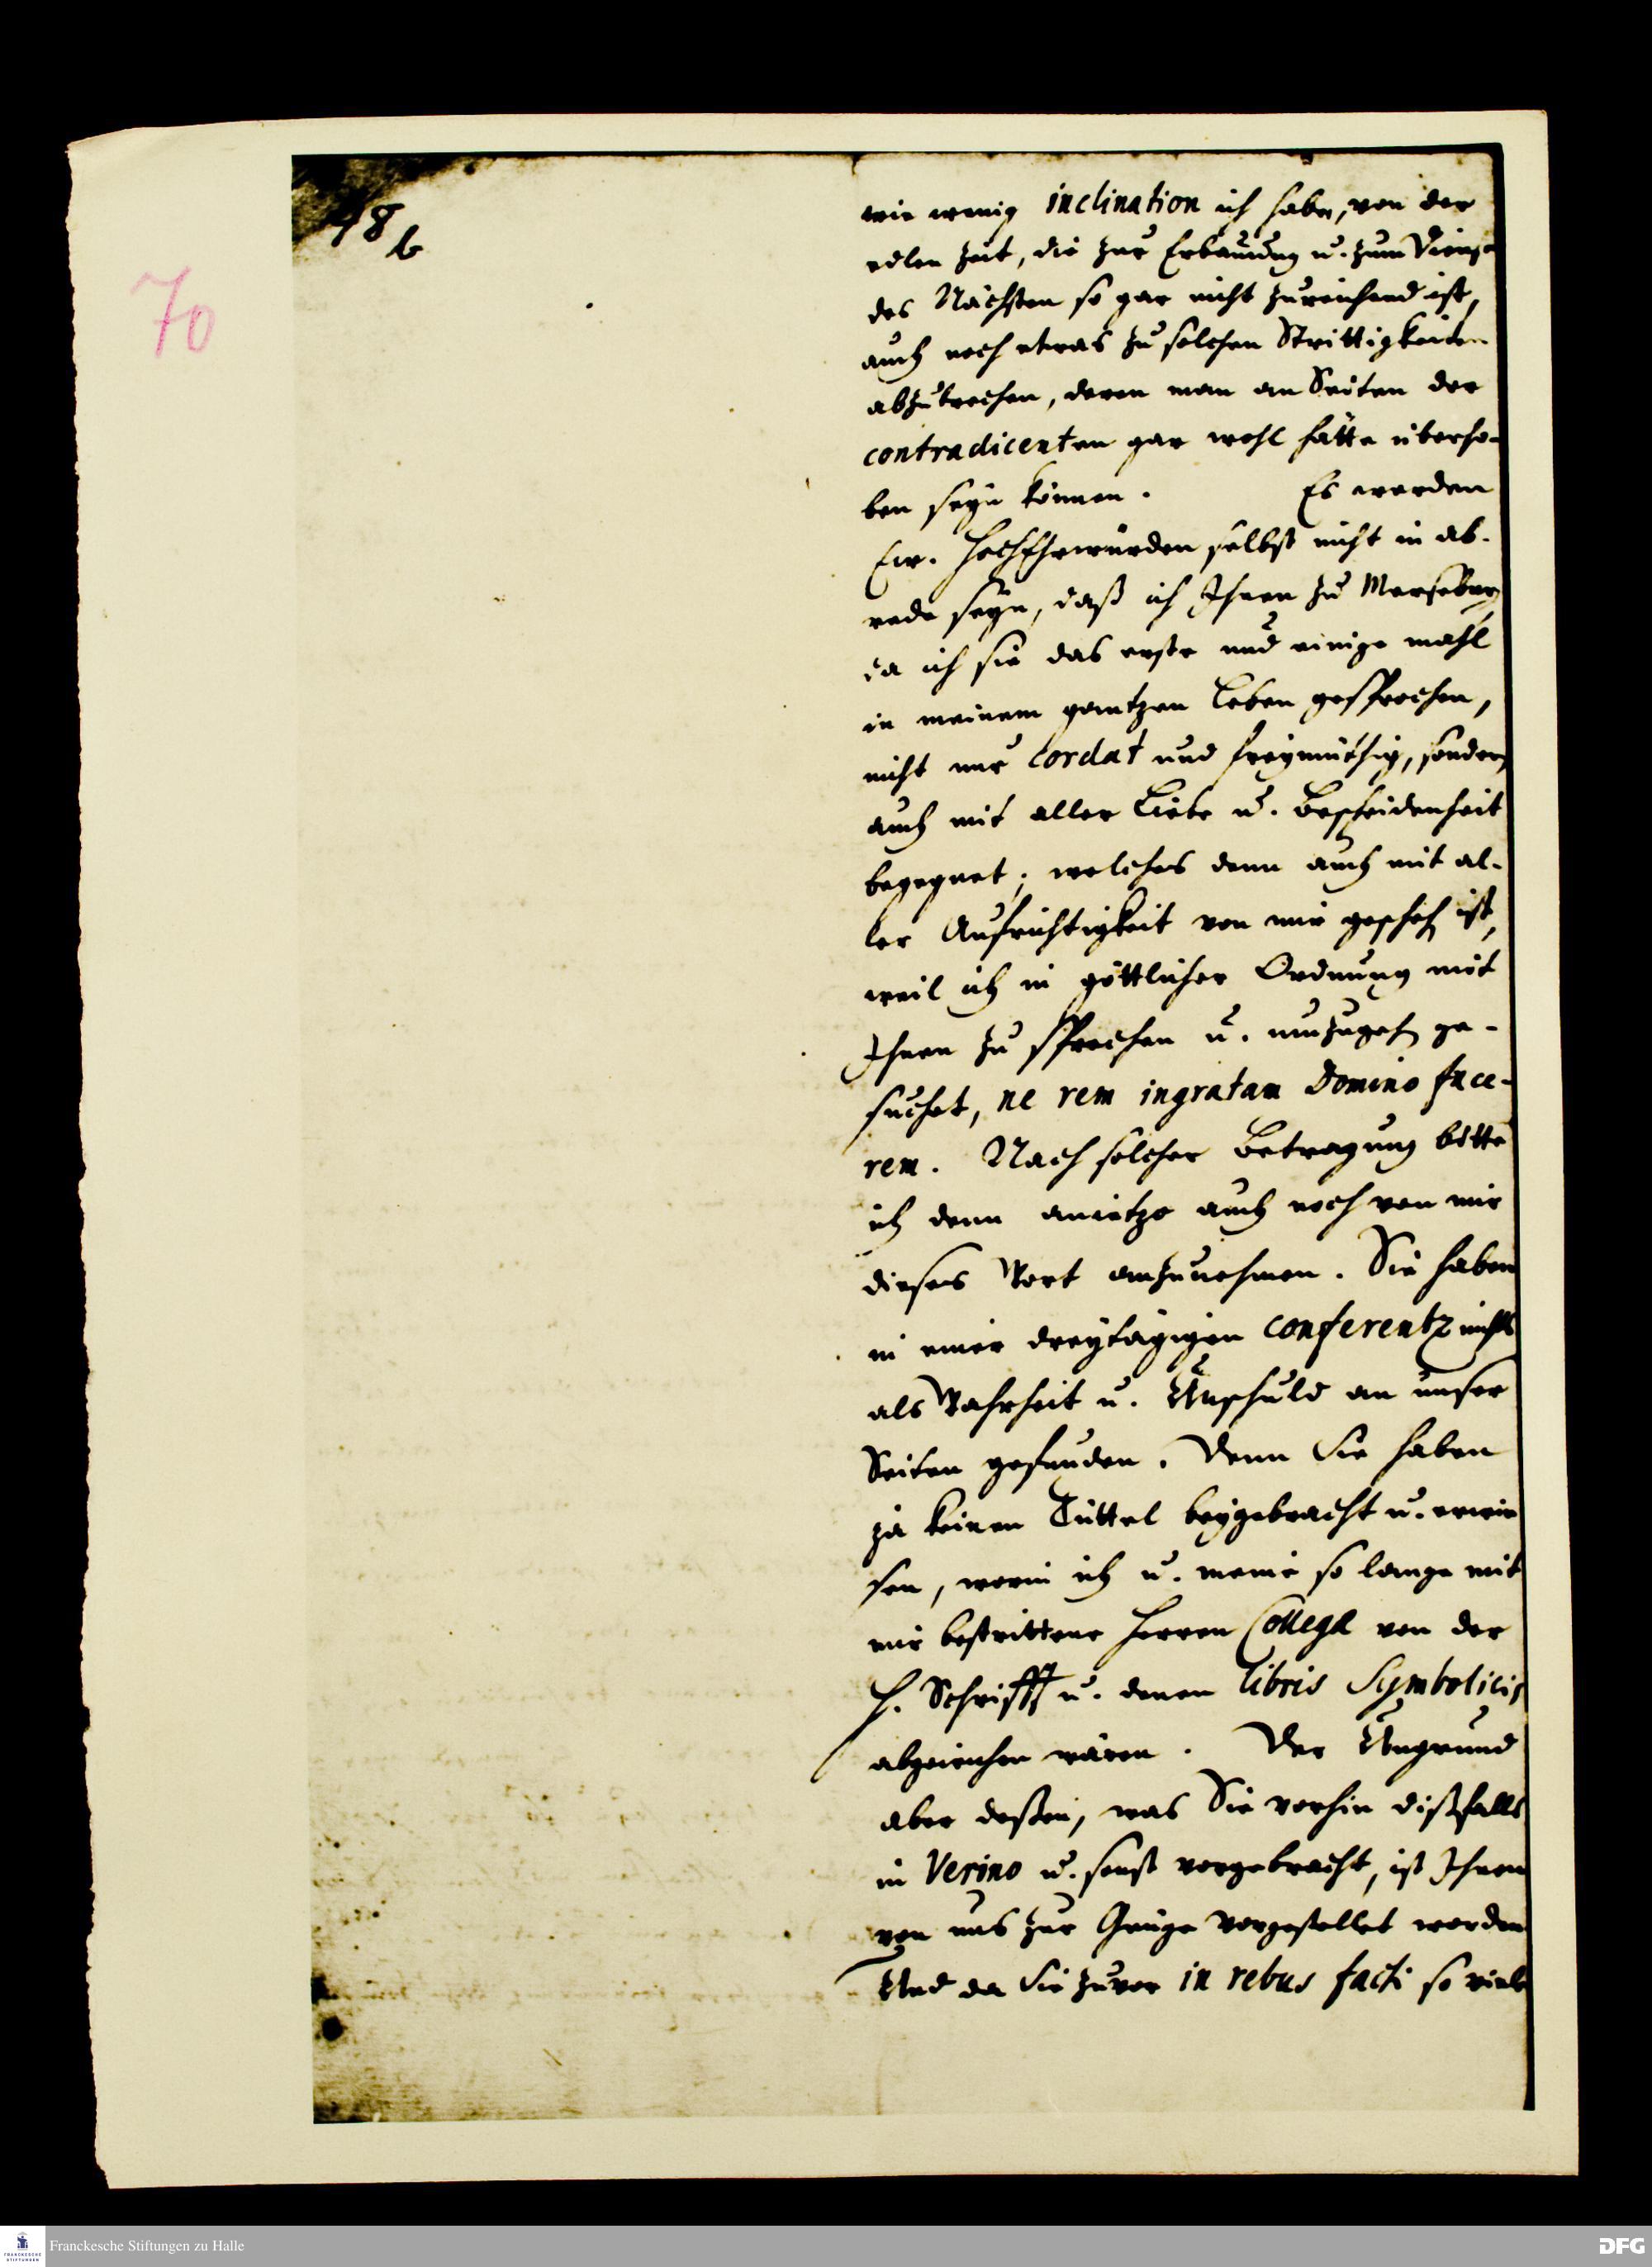 48
b
70
wie wenig inclination ich habe, von der
edlen Zeit, die zur Erbauung u. zum Dienst
des Nächsten so gar nicht zureichend ist,
auch noch etwas zu solchen Strittigkeiten
abzubrechen, deren man an Seiten der
contradicenten gar wohl hätte überho-
ben seyn können. Es werden
Ew. HochEhrwürden selbst nicht in ab-
rede seyn, daß ich Ihnen zu Merseburg
da ich sie das erste und einige mahl
in meinem gantzen Leben gesprochen,
nicht nur cordat und freymüthig, sondern
auch mit aller Liebe u. Bescheidenheit
begegnet; welches denn auch mit al-
ler Aufrichtigkeit von mir gescheh ist,
weil ich in göttlicher Ordnung mit
Ihnen zu sprechen u. umzugeh ge-
suchet, ne rem ingratam Domino face-
rem. Nach solcher Betragung bitte
ich denn anietzo auch noch von mir
dieses Wort anzunehmen. Sie haben
in einer dreytägigen conferentz nichts
als Wahrheit u. Unschuld an unser
Seiten gefunden. Denn Sie haben
ja keinen Tüttel beygebracht u. erwie
sen, worin ich u. meine so lange mit
mir bestrittene Herren Collegæ von der
H. Schrifft u. denen libris Symbolicis
abgewichen wären. Der Ungrund
aber deßen, was Sie vorhin dißfalls
in Verino u. sonst vorgebracht, ist Ihnen
von uns zur Gnüge vorgestellet worden
Und da Sie zuvor in rebus facti so viele
Franckesche Stiftungen zu Halle
DFG